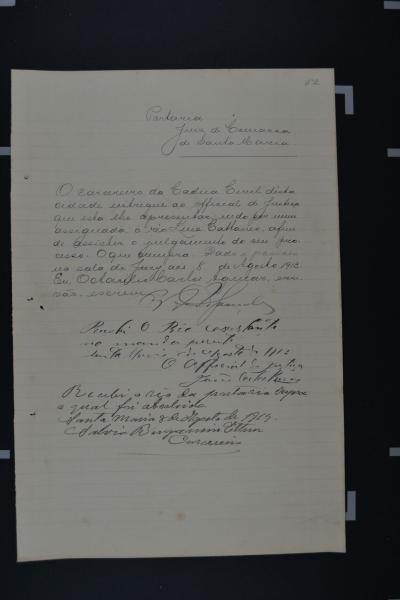 52
Portaria
Juiz de Comarca
de Santa Maria
O carcereiro da Cadeia Civil desta
cidade entregue ao official de justiça
que esta lhe apresentar, indo por mim
assignada, o réo Luiz Cattaneo, afim
de assistir o julgamento do seu pro-
cesso. O que cumpra. Dado e passado
na sala do jury, aos 8 de Agosto 1913.
Eu, Octacilio Carlos escri-
vão, escrevi.
Recebi O Réo constante
no mandado
Santa Maria de Agosto de 1913
O Official de justiça
João
Recebi o réo da portaria supra
o qual foi absolvido
Santa Maria 8 de Agosto de 1913.
Salvio Benjamin
Carcereiro